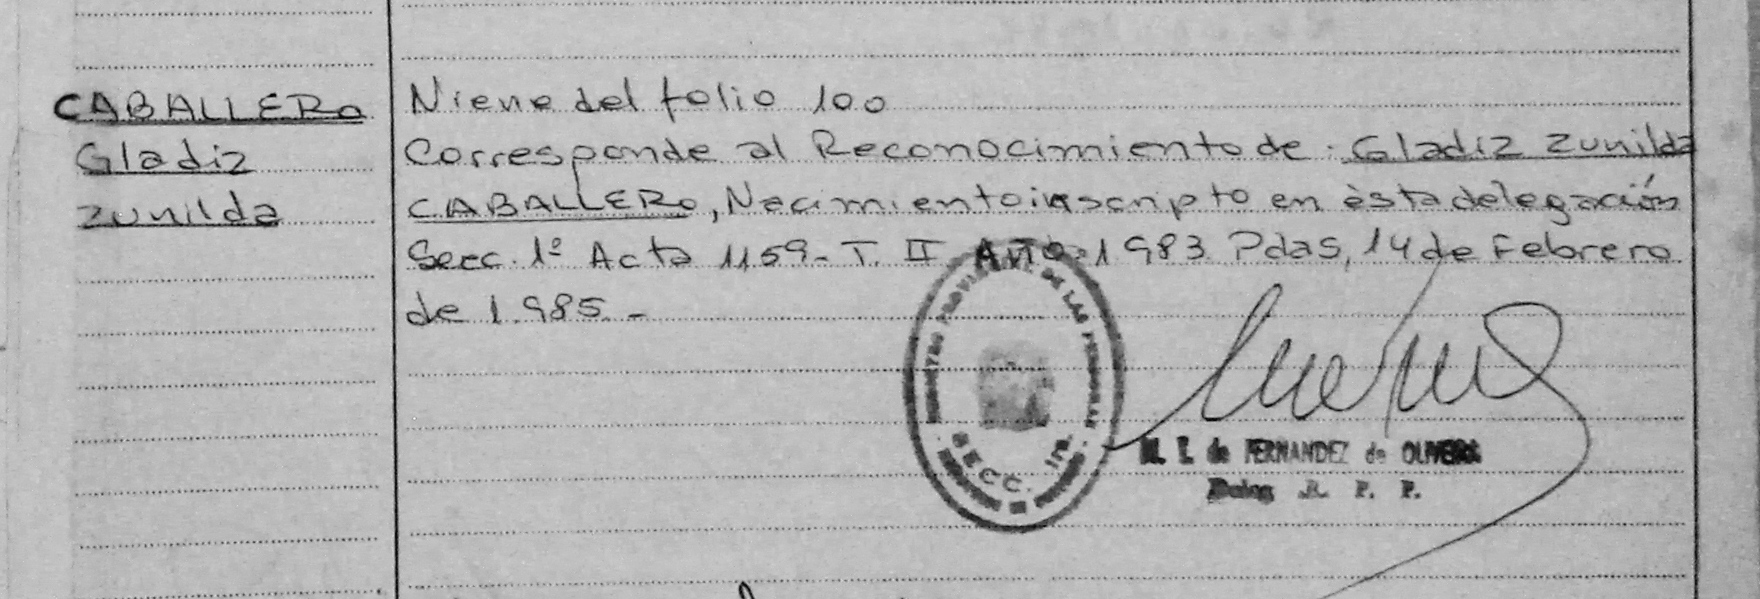 CABALLERO
Gladiz
Zunilda
Niene del folio 100
Corresponde al Reconocimiento de Gladiz Zunilda
CABALLERO, Nacimiento inscripto en ésta delegación
Secc. 1º Acta 1159 - T. II Año 1983. Pdas, 14 de Febrero
de 1.985. -
REGISTRO PROVINCIAL DE LAS PERSONAS
SECC. 1ra.
M. E. de FERNANDEZ de OLIVEIRA
Deleg R. P. P.